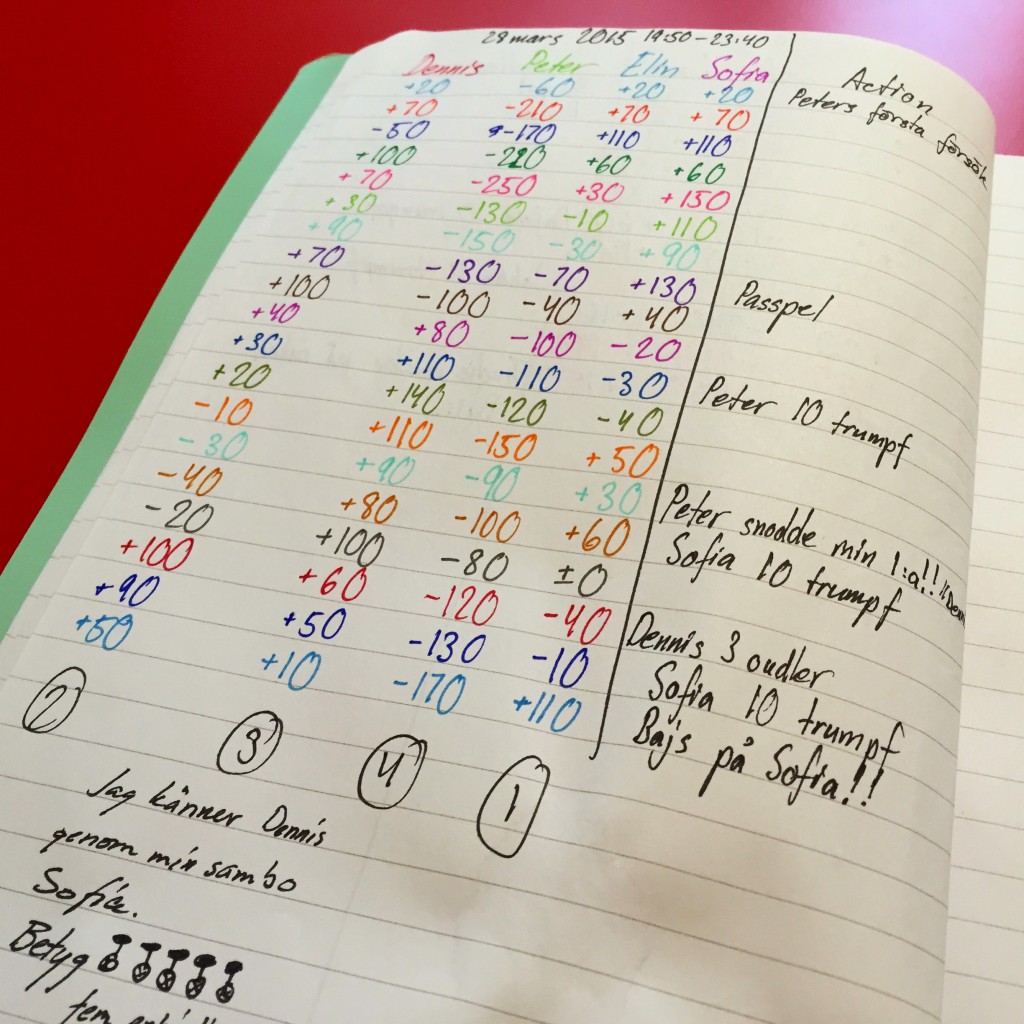 28 mars 2015 19:50-23:40
Dennis Peter Elin Sofia Action
+20 -60 +20 +20 Peters första försök
+70 -210 +70 +70
-50 -170 +110 +110
+100 -220 +60 +60
+70 -250 +30 +150
+30 -130 -10 +110
+90 -150 -30 +90
+70 -130 -70 +130 Passpel
+100 -100 -40 +40
+40 +80 -100 -20
+30 +110 -110 -30 Peter 10 trumpf
+20 +140 -120 -40
-10 +110 -150 +50
-30 +90 -90 +30 Peter snodde min 1:a!!
-40 +80 -100 +60 Sofia 10 trumpf
-20 +100 -80 ±0
+100 +60 -120 -40 Dennis 3 oudler
+90 +50 -130 -10 Sofia 10 trumpf
+50 +10 -170 +110 Bajs på Sofia!!
2 3 4 1
Jag känner Dennis
genom min sambo
Sofia.
Betyg